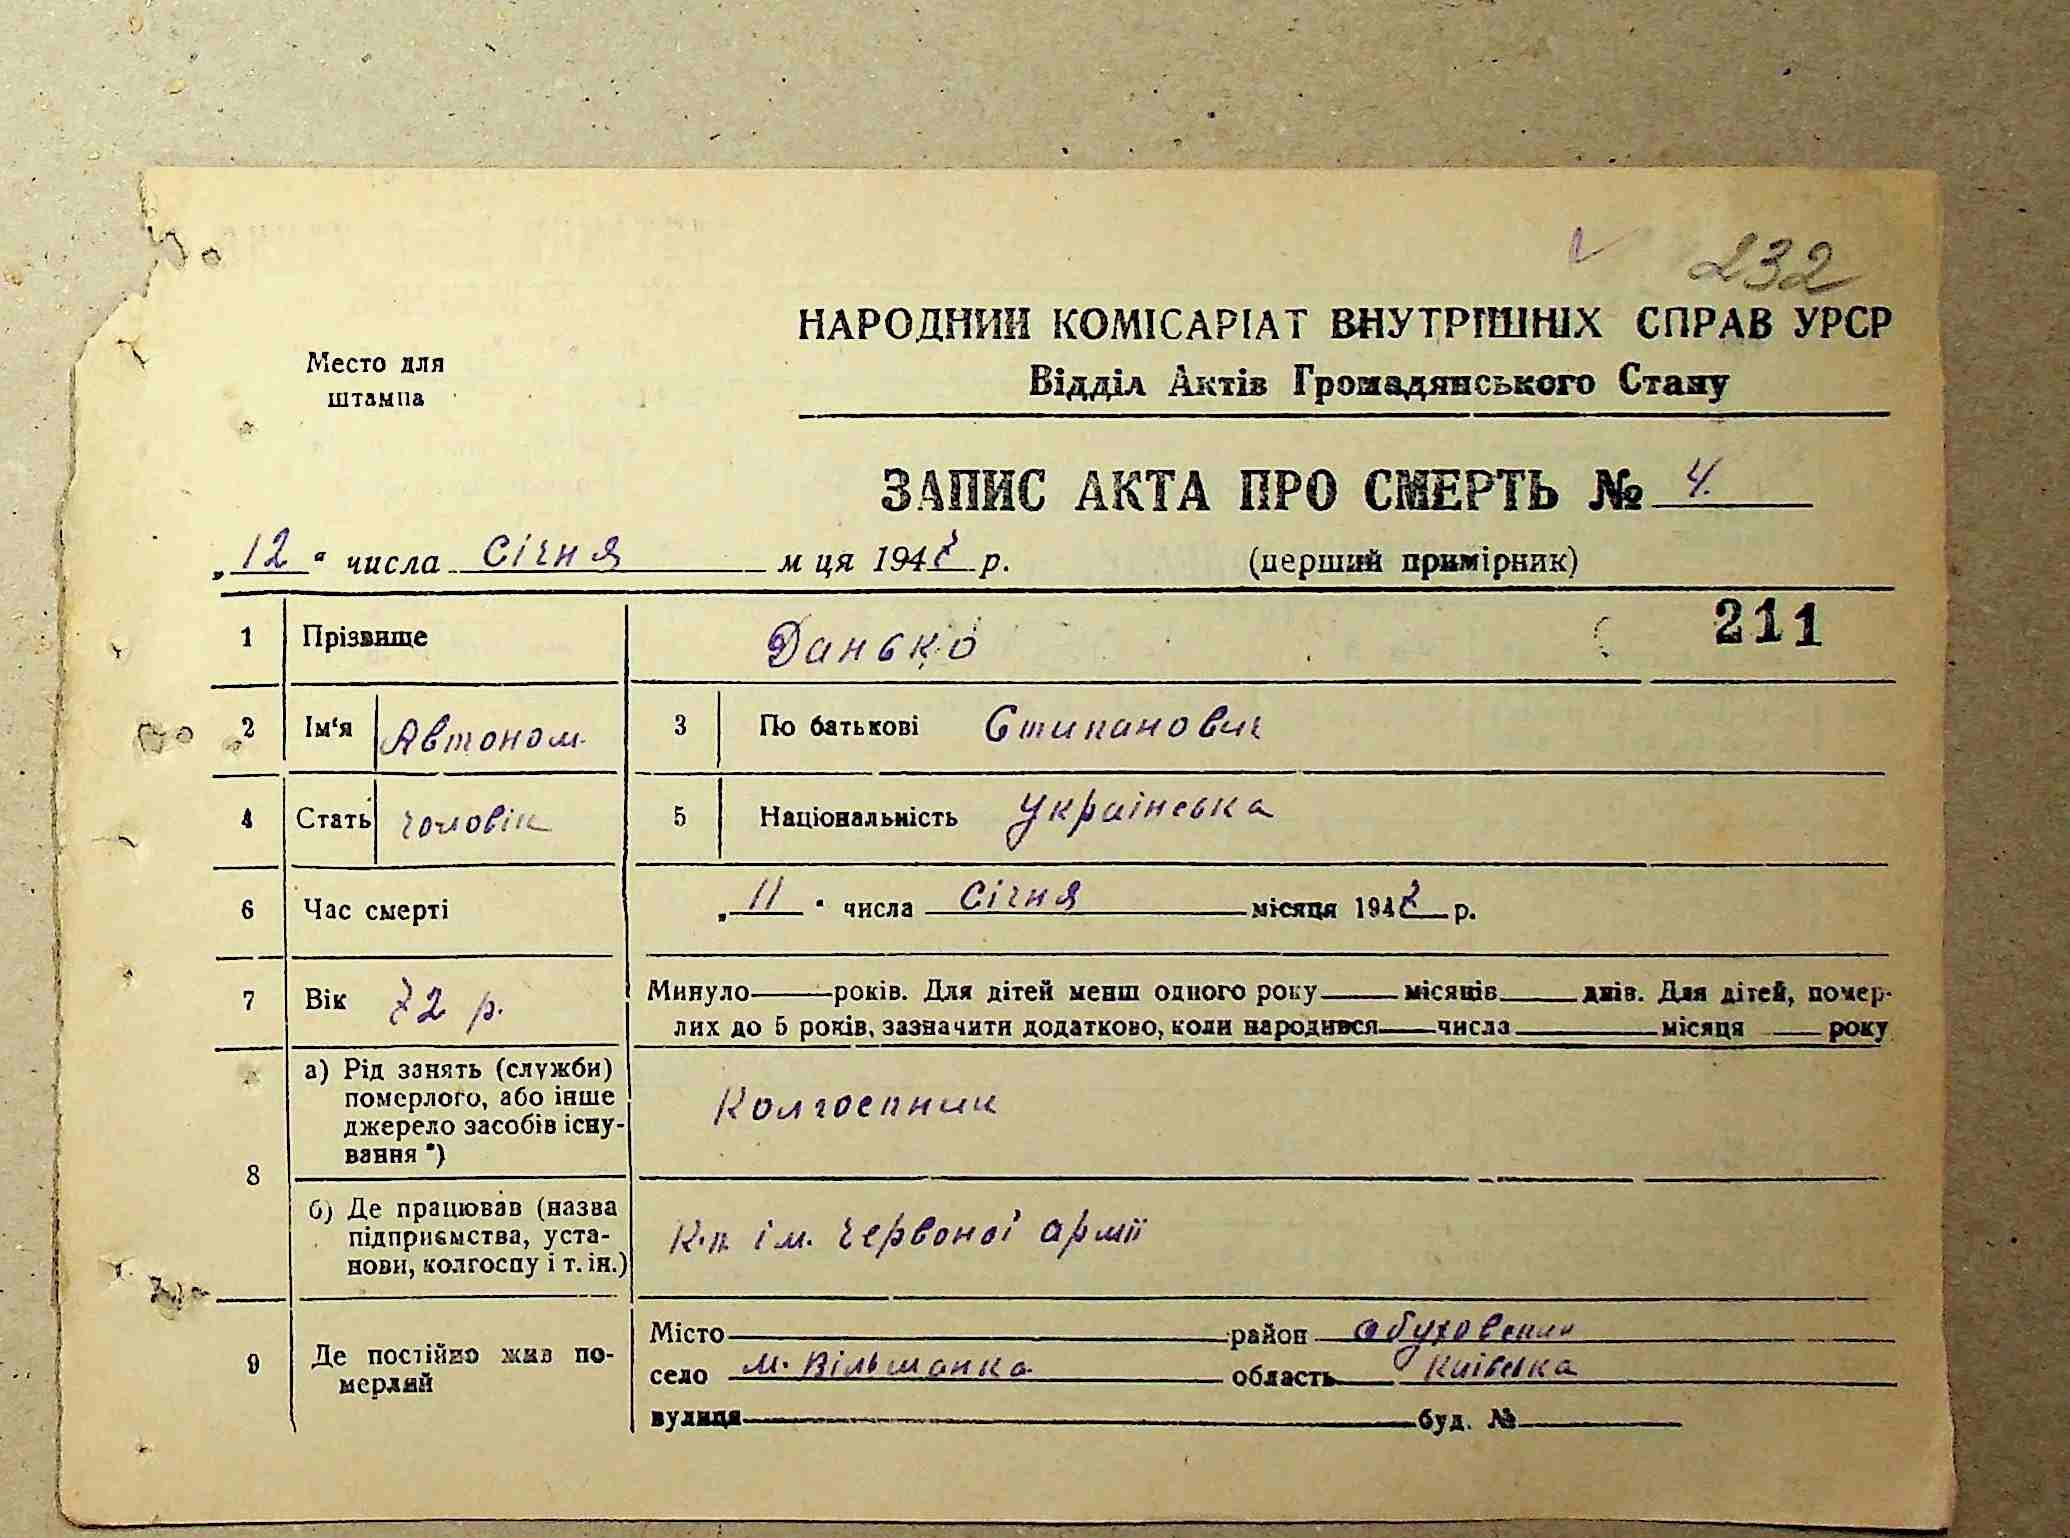 232
НАРОДНИЙ КОМІСАРІАТ ВНУТРІШНІХ СПРАВ УРСР
Место для
штампа
Відділ Актів Громадянського Стану
ЗАПИС АКТА ПРО СМЕРТЬ № 4.
„12“ числа Січня м ця 1947 р. (перший примірник)
211
1 Прізвище Данько
2 Ім'я Автоном 3 По батькові Стипанович
4 Стать чоловік 5 Національність Українська
6 Час смерті „11“ числа Січня місяця 1947 р.
7 Вік 72 р. Минуло — років. Для дітей менш одного року — місяців — днів. Для дітей, помер-
лих до 5 років, зазначити додатково, коли народився — числа — місяця — року
8 а) Рід занять (служби)
померлого, або інше
джерело засобів існу-
вання *)
Колгоспник
б) Де працював (назва
підприємства, уста-
нови, колгоспу і т. ін.)
К-п ім. Червоної армії
9 Де постійно жив по-
мерлий
Місто район Обуховский
село м. Вільшанка область Київська
вулиця буд. №